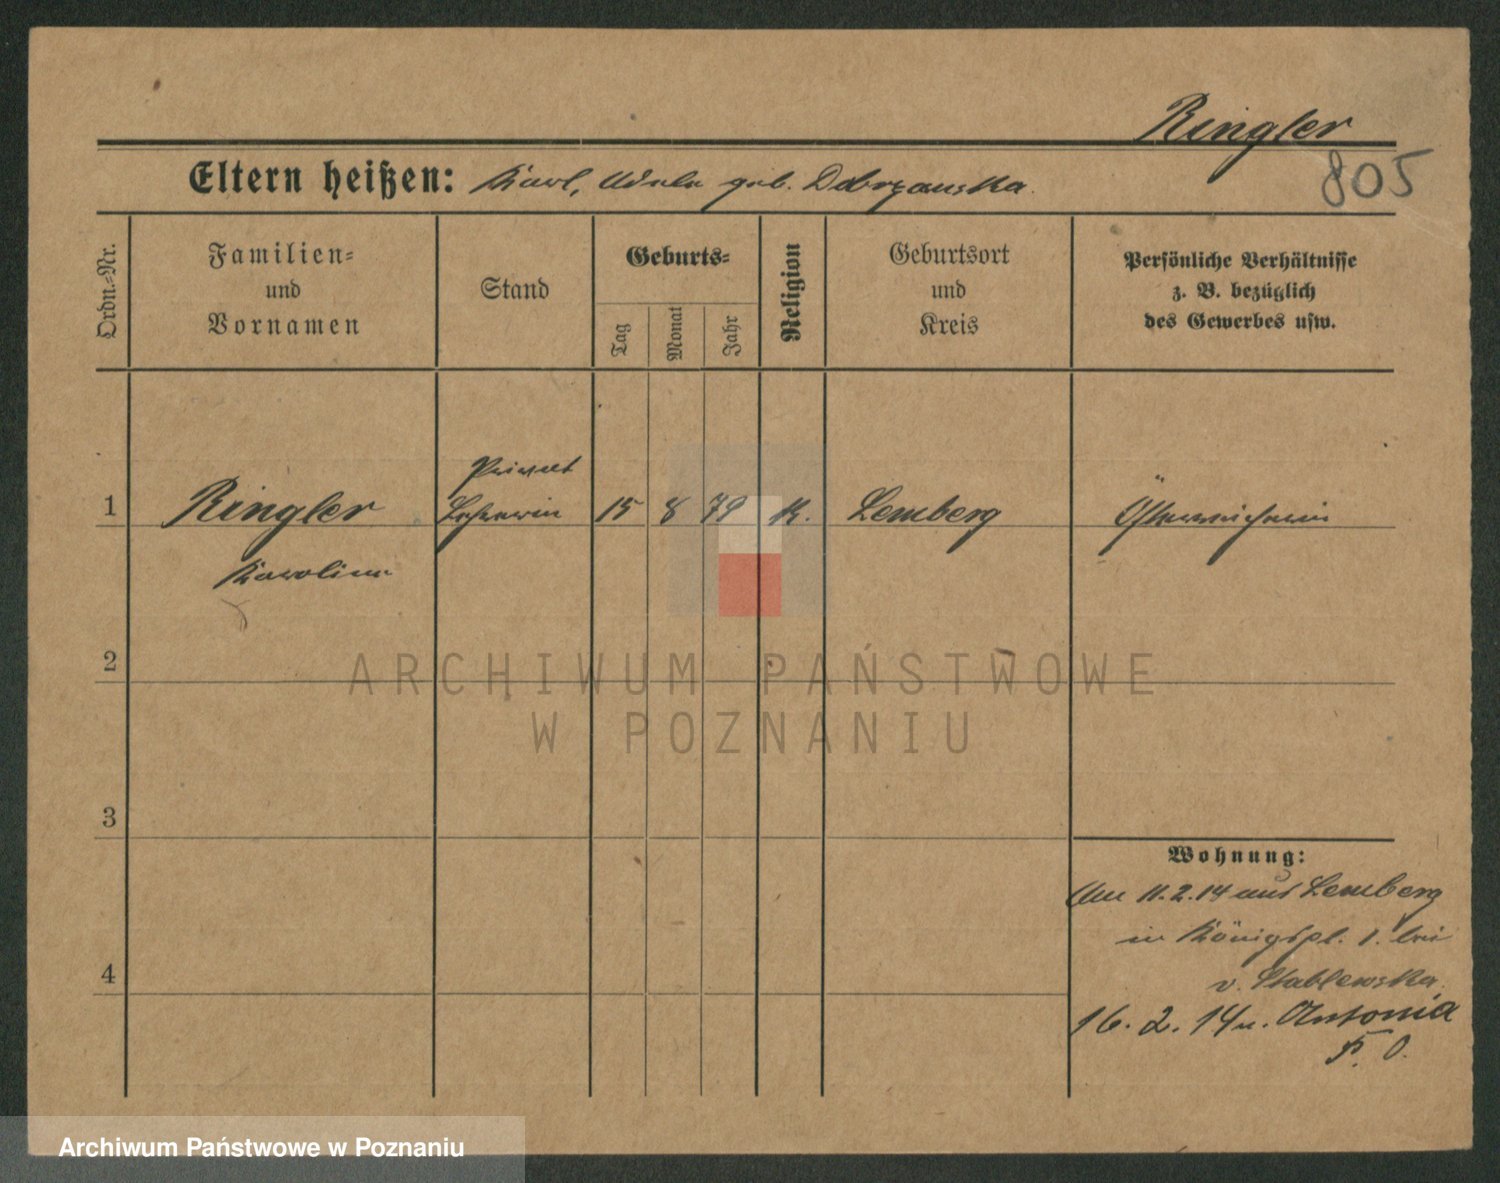 Ringler
805
Eltern heißen: Karl, Adele geb. Dobrzanska.
Ordn.-Nr.
Familien-
und
Vornamen
Stand
Geburts-
Tag
Monat
Jahr
Religion
Geburtsort
und
Kreis
Persönliche Verhältnisse
z. B. bezüglich
des Gewerbes usw.
Privat
1 Ringler Lehrerin 15 8 79 K. Lemberg Österreicherin
Karoline
2
3
4
Wohnung:
Am 11.2.14 aus Lemberg
in Königspl. 1. bei
v. Stablewska.
16.2.14 n. Antonia
P. O.
ARCHIWUM PAŃSTWOWE
W POZNANIU
Archiwum Państwowe w Poznaniu